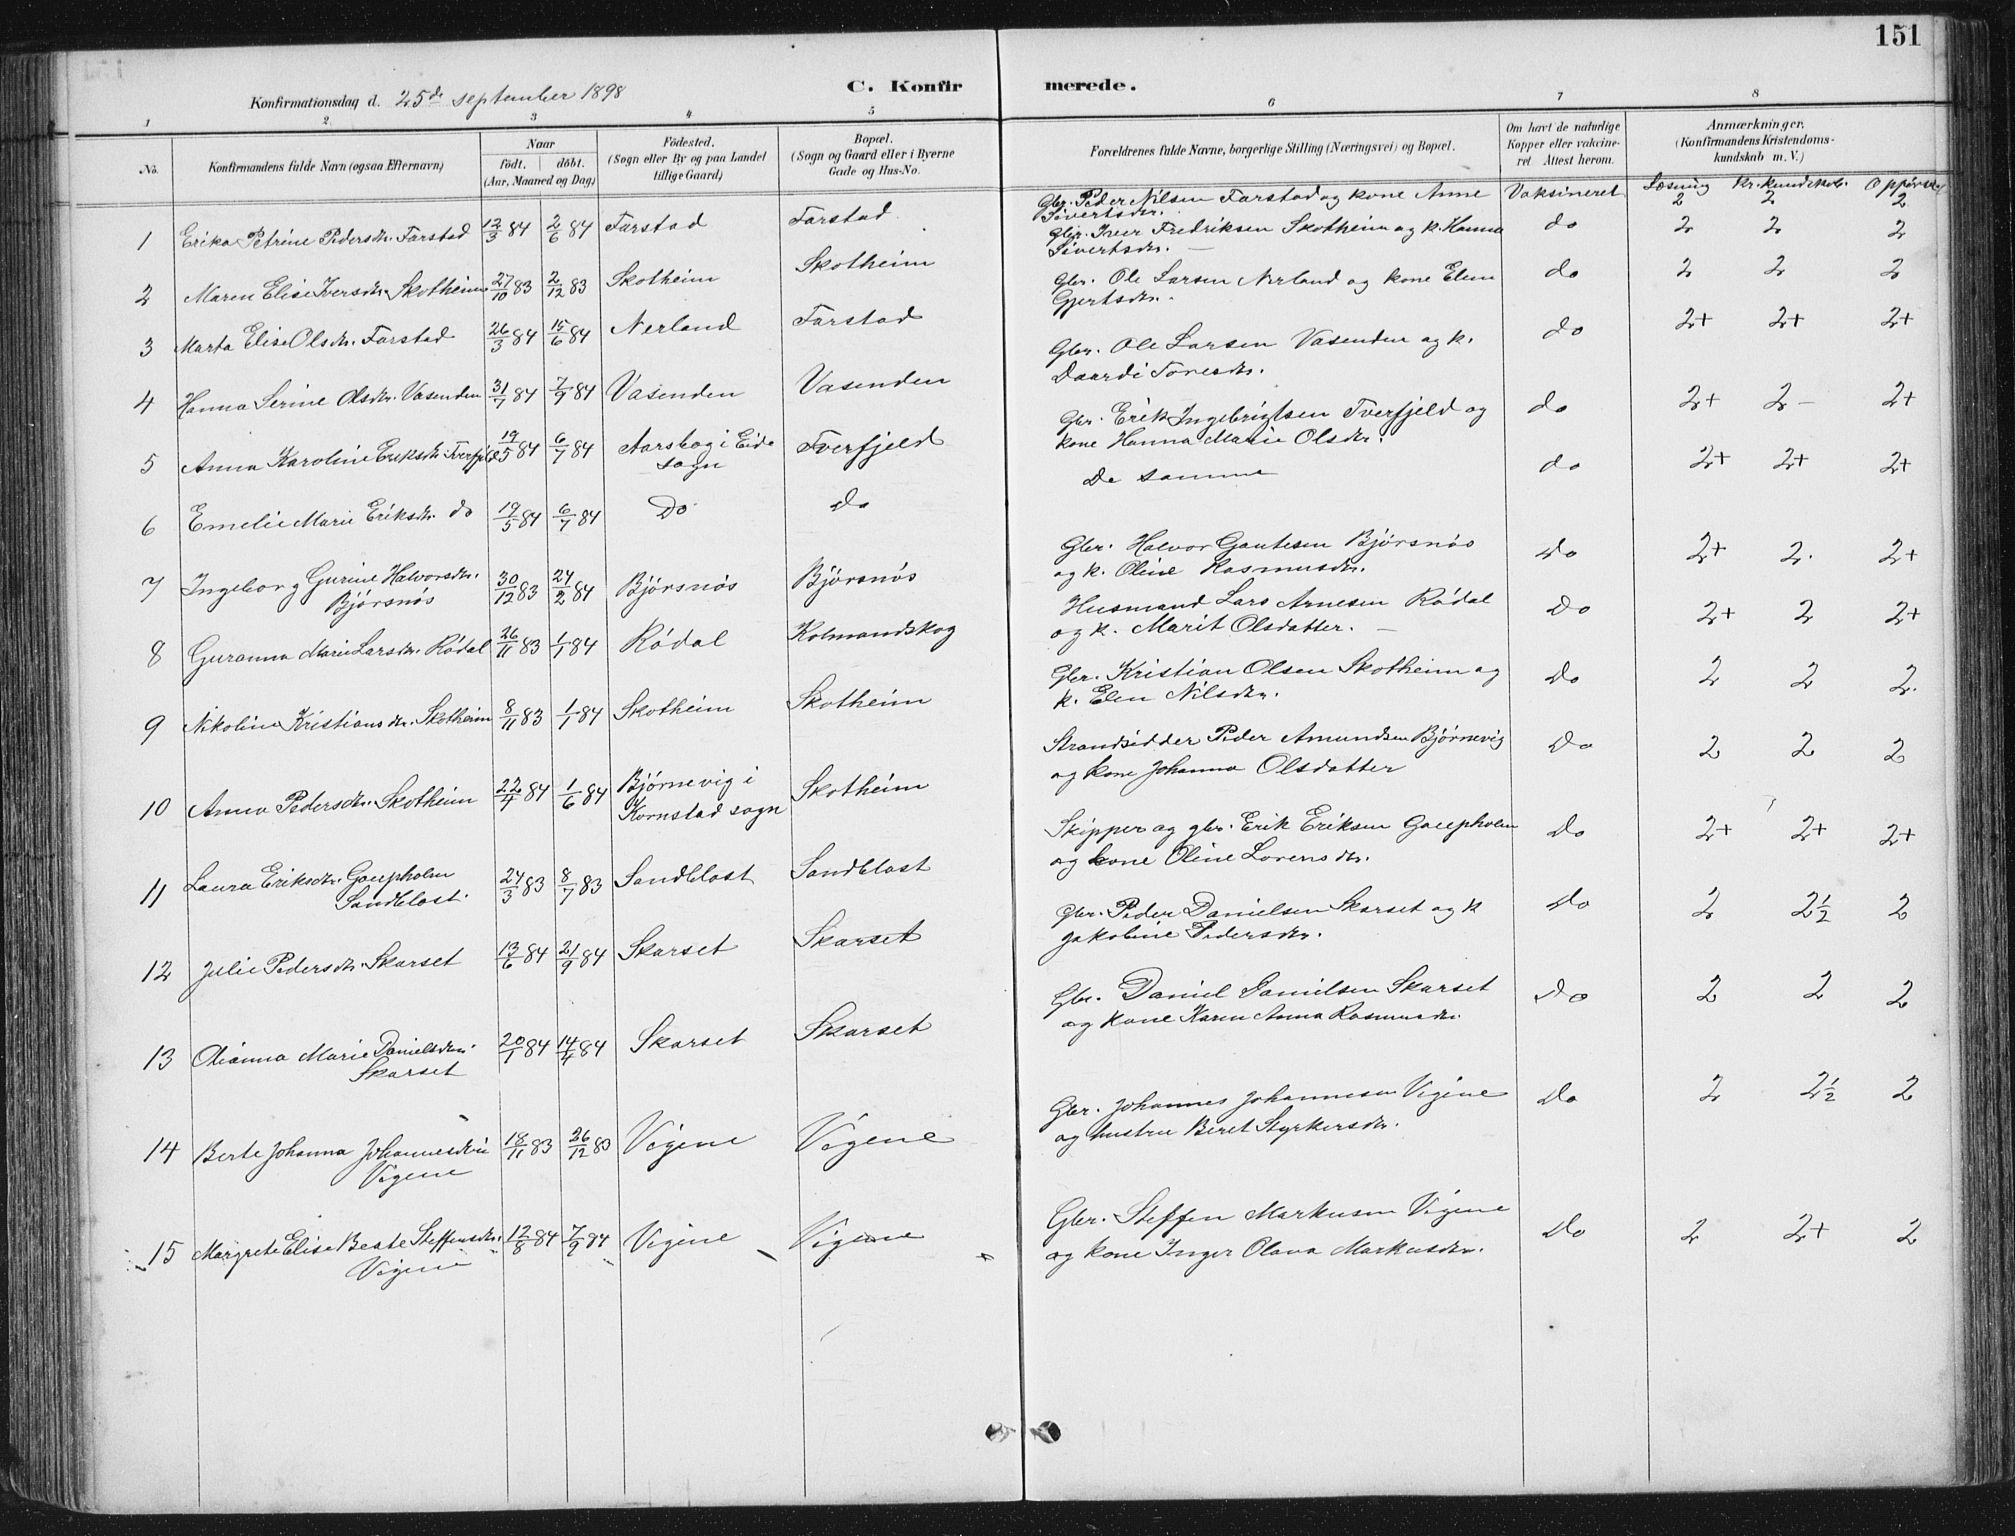 151
Konfirmationsdag d. 25de september 1898
C. Konfirmerede.
1 2 3 4 5 6 7 8
No. Konfirmandens fulde Navn (ogsaa Efternavn)
Naar født. døbt. (Aar, Maaned og Dag)
Fødested. (Sogn eller By og paa Landet tillige Gaard)
Bopæl. (Sogn og Gaard eller i Byerne Gade og Hus-No.
Forældrenes fulde Navne, borgerlige Stilling (Næringsvei) og Bopæl.
Om havt de naturlige Kopper eller vakcineret Attest herom.
Anmærkninger. (Konfirmandens Kristendomskundskab m. V.)
Læsning Kr. kundskab. Opførsel
1 Erika Petrine Pedersdtr. Farstad 12/3 84 2/6 84 Farstad Farstad Gbr. Peder Nilsen Farstad og kone Anne Sivertsdtr. Vaksineret 2 2 2
2 Maren Elise Iversdtr. Skotheim 27/10 83 2/12 83 Skotheim Skotheim Gbr. Iver Fredriksen Skotheim og k. Hanna Sivertsdtr. — do 2 2 2
3 Marta Elise Olsdtr. Farstad 26/3 84 15/6 84 Nerland Farstad Gbr. Ole Larsen Nerland og kone Elen Gjertsdtr. do 2 2 2
4 Hanna Serine Olsdtr. Vasenden 31/7 84 7/9 84 Vasenden Vasenden Gbr. Ole Larsen Vasenden og k. Daardi Toresdtr. do 2+ 2+ 2+
5 Anna Karoline Eriksdtr. Tverfjeld 19/5 84 6/7 84 Aarsbog i Eide sogn Tverfjeld Gbr. Erik Ingebrigtsen Tverfjeld og kone Hanna Marie Olsdtr. do 2+ 2- 2+
6 Emelie Marie Eriksdtr. do 19/5 84 6/7 84 Do do De samme do 2+ 2+ 2+
7 Ingeborg Gurine Halvorsdtr. Bjørsnøs 30/12 83 24/2 84 Bjørsnøs Bjørsnøs Gbr. Halvor Gautesen Bjørsnøs og k. Oline Rasmusdtr. Do 2+ 2. 2+
8 Guranna Marie Larsdtr. Rødal 26/11 83 1/1 84 Rødal Kolmandskog Husmand Lars Arnesen Rødal og k. Marit Olsdatter. — Do 2+ 2 2+
9 Nikoline Kristiansdtr. Skotheim 8/11 83 1/1 84 Skotheim Skotheim Gbr. Kristian Olsen Skotheim og k. Elen Nilsdtr. Do 2 2 2.
10 Anna Pedersdtr. Skotheim 22/4 84 1/6 84 Bjørnevig i Kornstad sogn Skotheim Strandsidder Peder Amundsen Bjørnevig og kone Johanna Olsdatter Do 2 2 2
11 Laura Eriksdtr. Gaupholm Sandblost. 24/3 83 8/7 83 Sandblost Sandblost Skipper og gbr. Erik Eriksen Gaupholm og kone Oline Lorensdtr. Do 2+ 2+ 2+
12 Julie Pedersdtr. Skarset 13/6 84 21/9 84 Skarset Skarset Gbr. Peder Danielsen Skarset og k Jakobine Pedersdtr. Do 2 2½ 2
13 Olianna Marie Danielsdtr. Skarset 20/1 84 14/4 84 Skarset Skarset Gbr. Daniel Danielsen Skarset og kone Karen Anna Rasmusdtr. Do 2 2 2
14 Berte Johanna Johannesdtr. Vigene 18/11 83 26/12 83 Vigene Vigene Gbr. Johannes Johannesen Vigene og hustru Beret Styrkersdtr. Do 2 2½ 2
15 Margrete Elise Beate Steffensdtr. Vigene 12/8 84 7/9 84 Vigene Vigene Gbr. Steffen Markusen Vigene og kone Inger Olava Markusdtr. Do 2 2+ 2